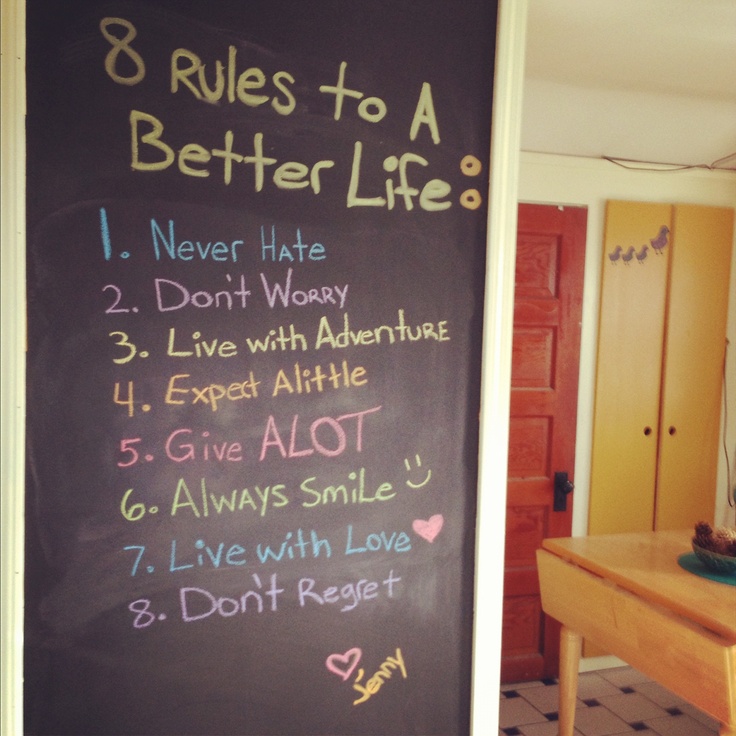 8 Rules to A
Better Life:
1. Never Hate
2. Don't Worry
3. Live with Adventure
4. Expect Alittle
5. Give ALOT
6. Always Smile
7. Live with Love
8. Don't Regret
Jenny